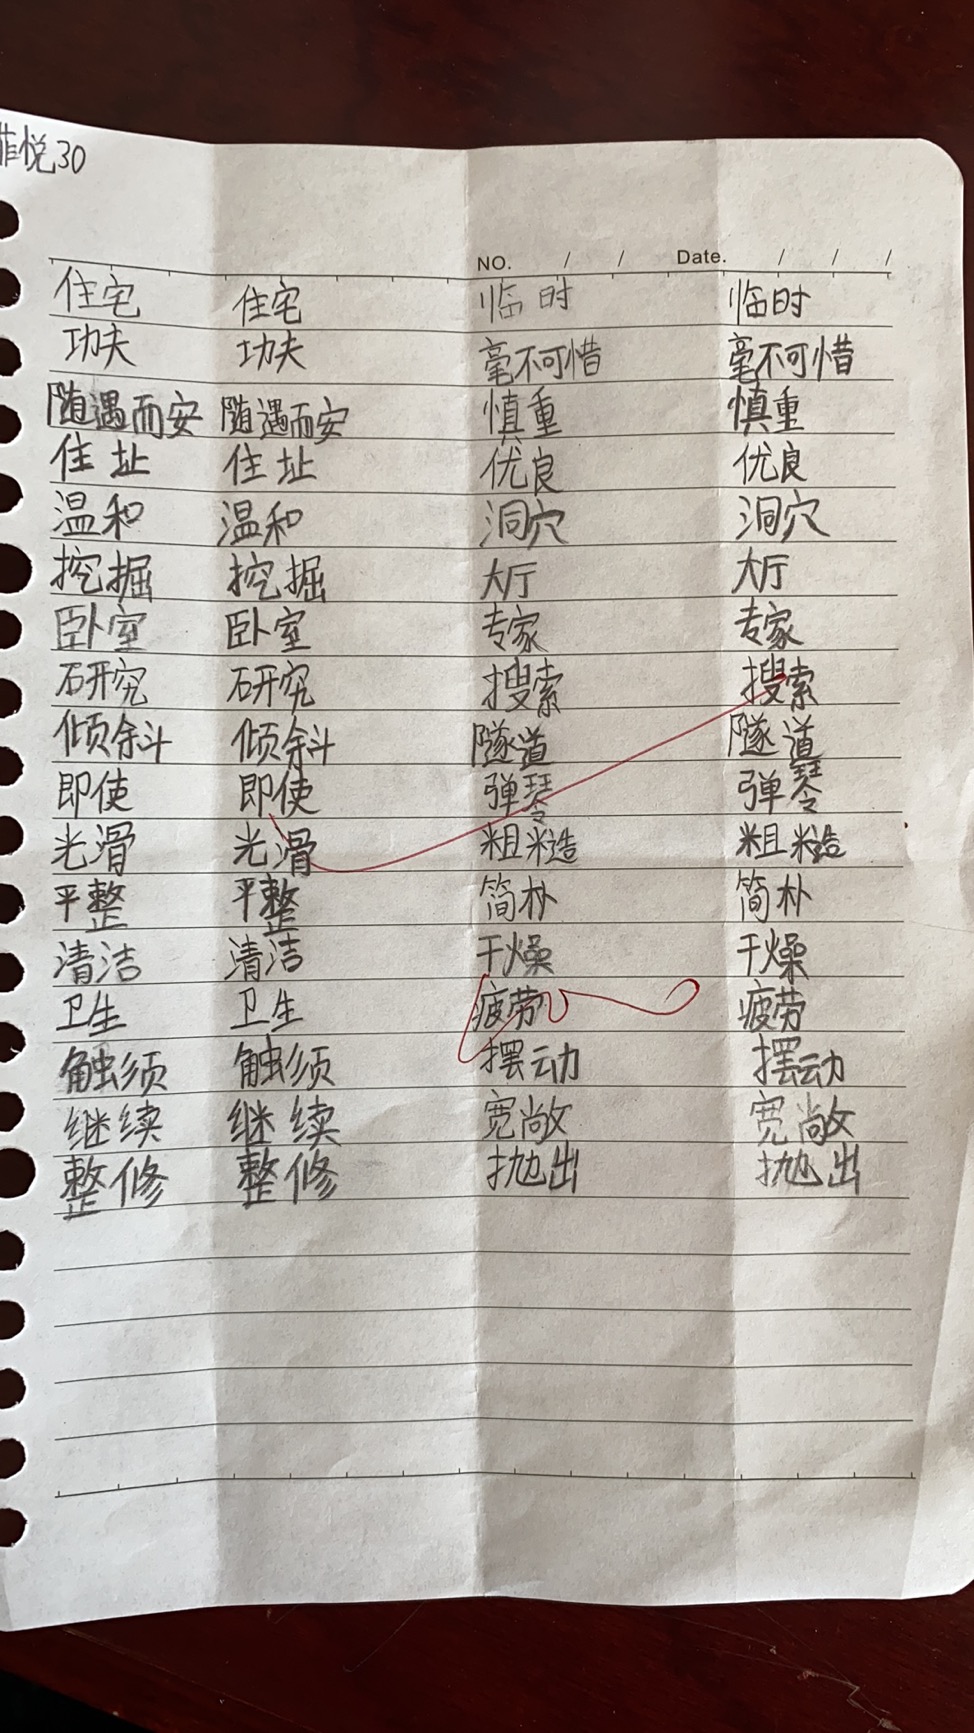 菲悦30
NO. / / Date. / / /
住宅 住宅 临时 临时
功夫 功夫 毫不可惜 毫不可惜
随遇而安 随遇而安 慎重 慎重
住址 住址 优良 优良
温和 温和 洞穴 洞穴
挖掘 挖掘 大厅 大厅
卧室 卧室 专家 专家
研究 研究 搜索 搜索
倾斜 倾斜 隧道 隧道
即使 即使 弹琴 弹琴
光滑 光滑 粗糙 粗糙
平整 平整 简朴 简朴
清洁 清洁 干燥 干燥
卫生 卫生 疲劳 疲劳
触须 触须 摆动 摆动
继续 继续 宽敞 宽敞
整修 整修 抛出 抛出